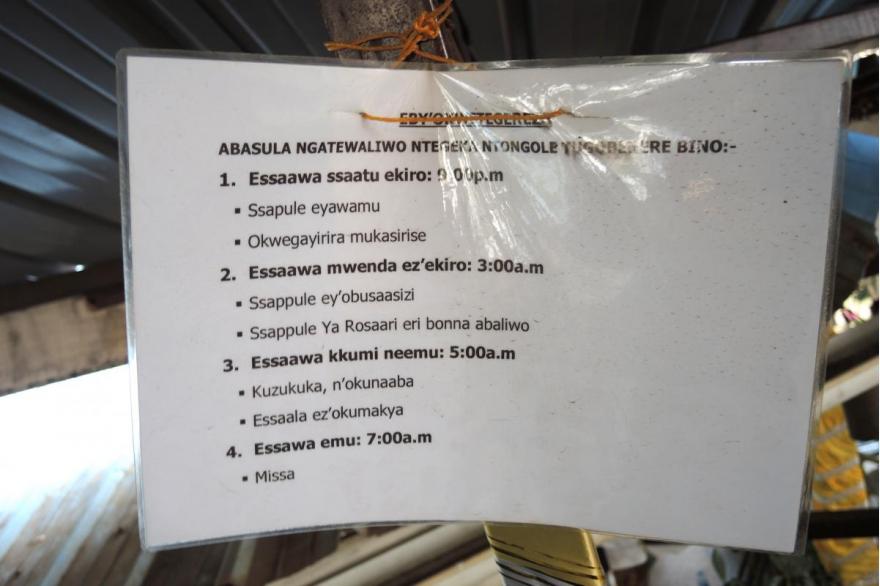 EBY'OKWETEGEREZA
ABASULA NGATEWALIWO NTEGEKA NTONGOLE TUGOBERERE BINO:-
1. Essaawa ssaatu ekiro: 9:00p.m
▪ Ssapule eyawamu
▪ Okwegayirira mukasirise
2. Essaawa mwenda ez'ekiro: 3:00a.m
▪ Ssappule ey'obusaasizi
▪ Ssappule Ya Rosaari eri bonna abaliwo
3. Essaawa kkumi neemu: 5:00a.m
▪ Kuzukuka, n'okunaaba
▪ Essaala ez'okumakya
4. Essawa emu: 7:00a.m
▪ Missa